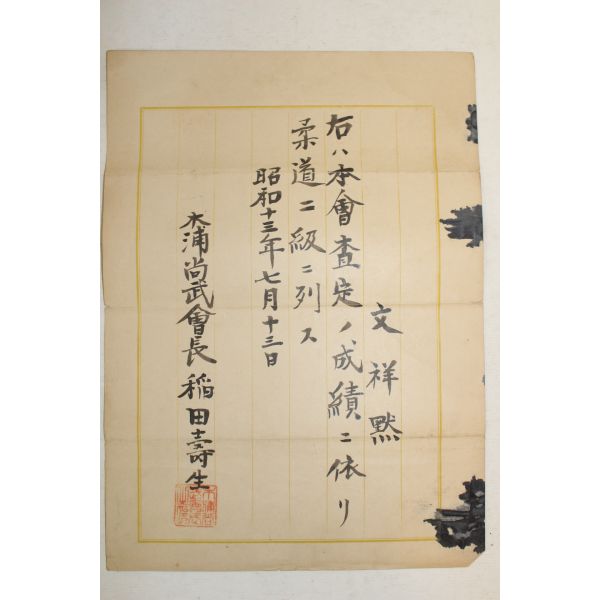 文祥黙
右ハ本會査定ノ成績ニ依リ
柔道二級ニ列ス
昭和十三年七月十三日
木浦尚武會長稲田壽生